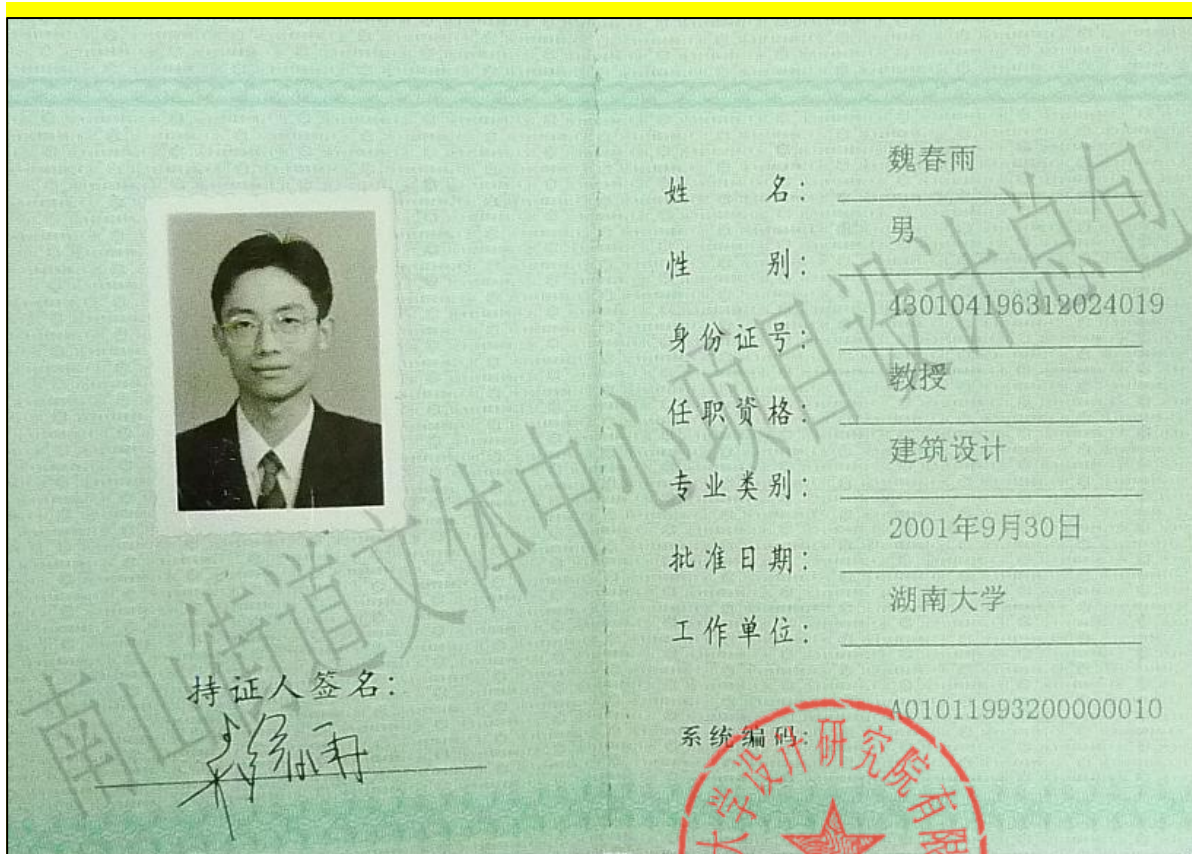 姓名：魏春雨
性别：男
身份证号：430104196312024019
任职资格：教授
专业类别：建筑设计
批准日期：2001年9月30日
工作单位：湖南大学
系统编码：A01011993200000010
持证人签名：
魏春雨
南山街道文体中心项目设计总包
大学设计研究院有限